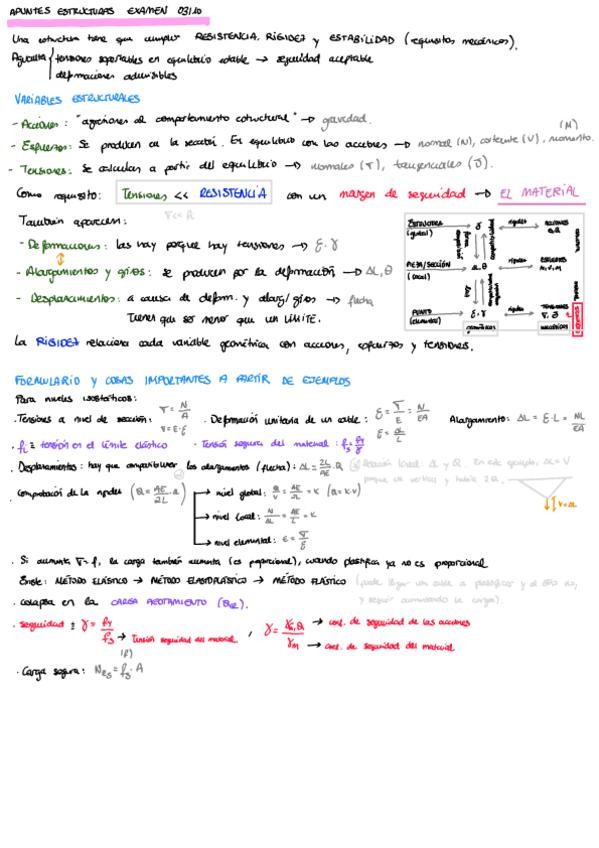 APUNTES ESTRUCTURAS EXAMEN 03/10
Una estructura tiene que cumplir RESISTENCIA, RIGIDEZ y ESTABILIDAD (requisitos mecánicos).
Aguanta { tensiones soportables en equilibrio estable → seguridad aceptable
deformaciones admisibles
VARIABLES ESTRUCTURALES
- Acciones: "agresiones al comportamiento estructural" → gravedad.
- Esfuerzos: Se producen en la sección. En equilibrio con las acciones → normal (N), cortante (V), momento. (M)
- Tensiones: Se calculan a partir del equilibrio → normales (σ), tangenciales (τ).
Como requisito: Tensiones << RESISTENCIA con un margen de seguridad → EL MATERIAL
También aparecen:
- Deformaciones: las hay porque hay tensiones → ε, γ
- Alargamientos y giros: se producen por la deformación → ΔL, θ
- Desplazamientos: a causa de deform. y alarg/giros → flecha
Tienen que ser menor que un LÍMITE.
ESTRUCTURA (global) rigidez ACCIONES
PIEZA/SECCIÓN (local) ΔL, θ rigidez ESFUERZOS N, V, M
PUNTO (elemental) ε, γ rigidez TENSIONES
geométricas mecánicas
La RIGIDEZ relaciona cada variable geométrica con acciones, esfuerzos y tensiones.
FORMULARIO Y COSAS IMPORTANTES A PARTIR DE EJEMPLOS
Para niveles isostáticos:
· Tensiones a nivel de sección: σ = N/A σ = E·ε · Deformación unitaria de un cable: ε = σ/E = N/EA ε = ΔL/L Alargamiento: ΔL = ε·L = NL/EA
· fL ≡ tensión en el límite elástico · Tensión segura del material: fs = fy/γ
· Desplazamientos: hay que compatibilizar los alargamientos (flecha): ΔL = 2L/AE · Q Relación local: ΔL y Q. En este ejemplo, ΔL = V
porque es vertical y habría 2Q.
V = ΔL
· Comprobación de la rigidez (Q = AE/2L · Δ) → nivel global: Q/V = AE/2L = K (Q = K·V)
→ nivel local: N/ΔL = AE/L = K
→ nivel elemental: E = σ/ε
· Si aumenta σ = f, la carga también aumenta (es proporcional), cuando plastifica ya no es proporcional
Existe: MÉTODO ELÁSTICO → MÉTODO ELASTOPLÁSTICO → MÉTODO PLÁSTICO (puede llegar un cable a plastificar y el otro no,
y seguir aumentando la carga).
· colapsa en la CARGA AGOTAMIENTO (QR).
· seguridad: γ = fy/fs → Tensión seguridad del material, γ = γG,Q/γM → coef. de seguridad de las acciones
→ coef. de seguridad del material
· Carga segura: NRs = fs · A